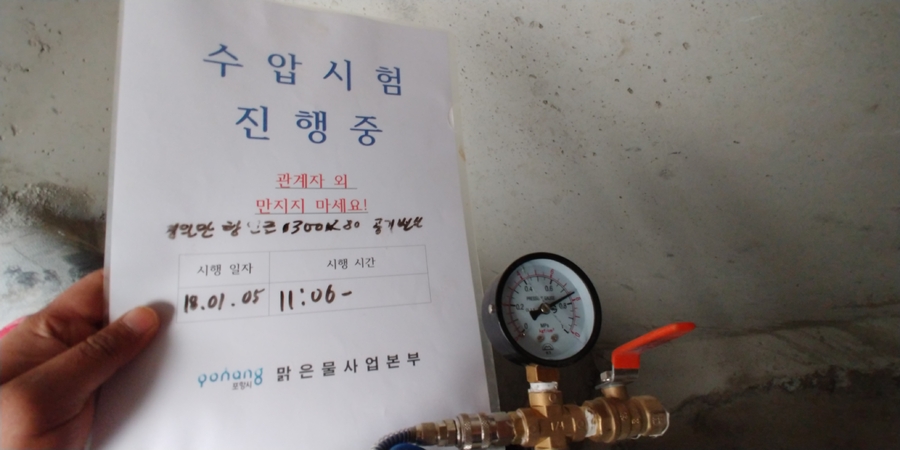 수압시험
진행중
관계자 외
만지지 마세요!
영일만항 인근 D300 K80 공기변실
시행 일자 시행 시간
18.01.05 11:06-
pohang
포항시
맑은물사업본부
MPa